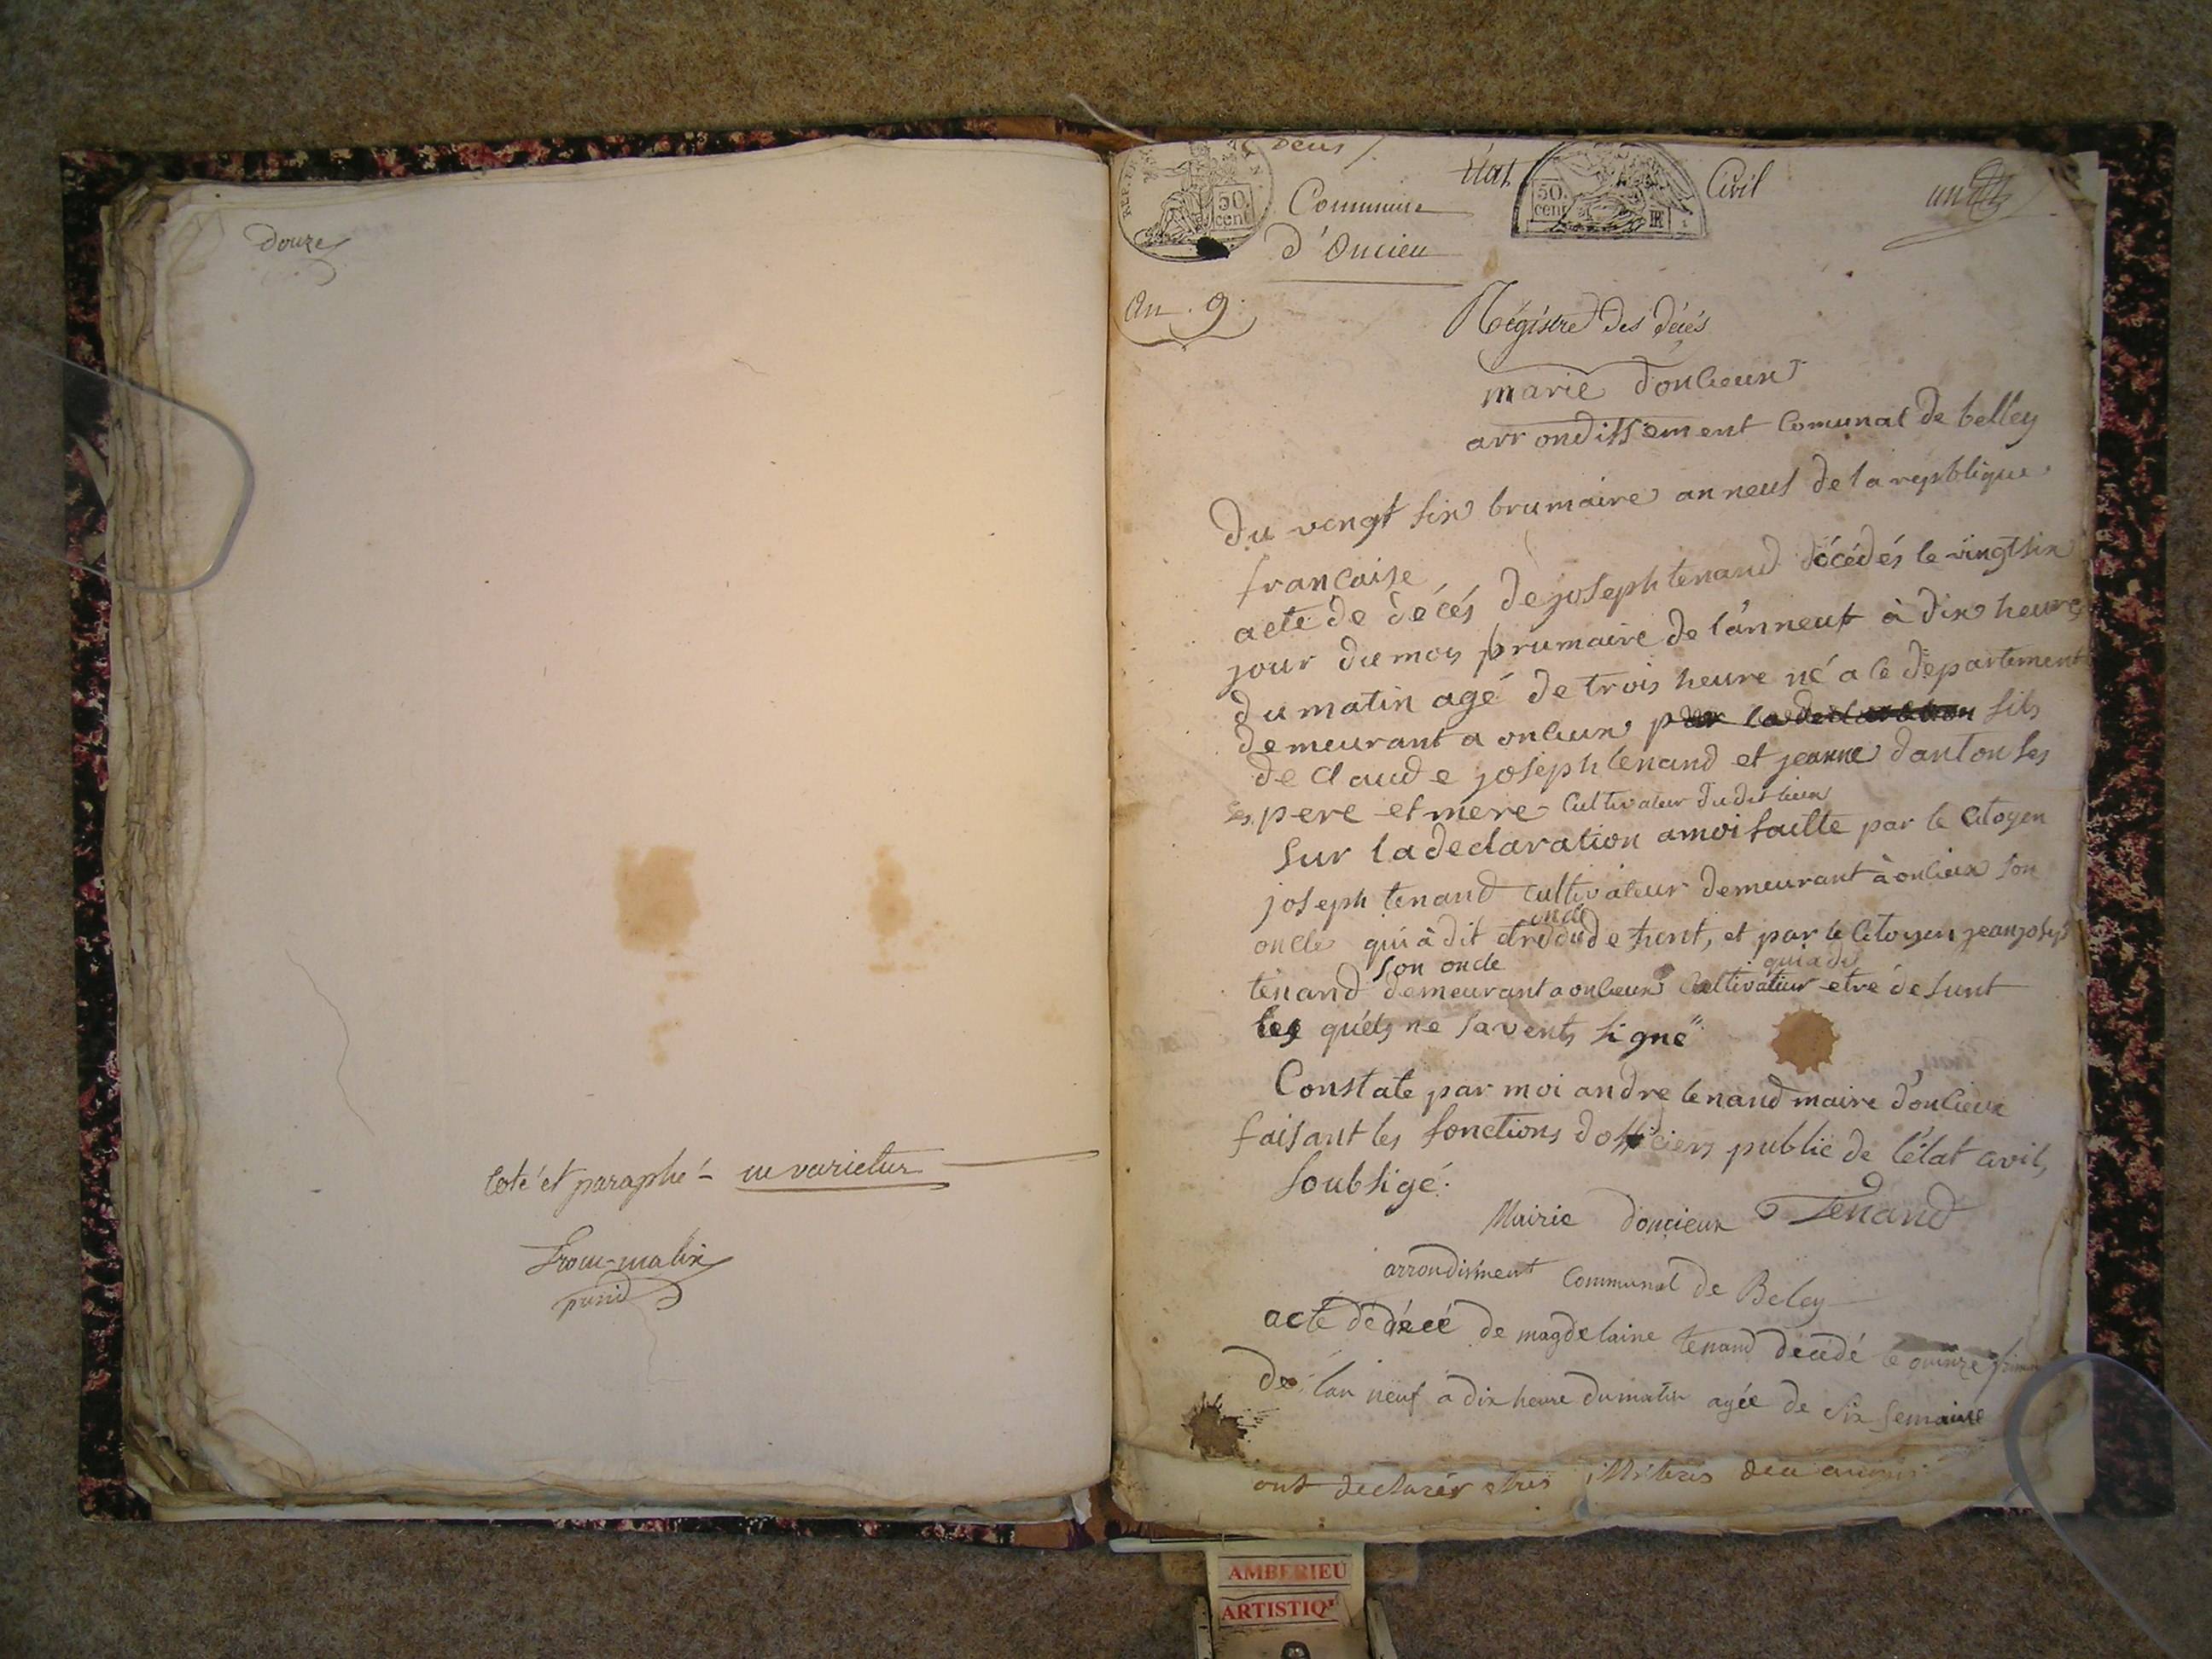 Douze
Coté et paraphé - ne varietur
REP. FR
50.
cent
Deus
État
50.
cent
Civil
Commune
d'Oncieu
An. 9.
Régistre des décès
marie d'onlieux
arrondissement Comunal de belley
Du vengt six brumaire an neuf de la repblique
francaise
acte de décés de joseph tenand décédés le vingt six
jour du mois brumaire de l'an neuf à dix heures
du matin agé de trois heure né a le departement
demeurant a onlieux par la declaration fils
de claude joseph tenand et jeanne danton ses
ses pere et mere Cultivateur dudit lieux
Sur la declaration a moi faitte par le citoyen
joseph tenand cultivateur demeurant à onlieux son
oncle
oncle qui à dit etre du de funt, et par le Citoyen jean joseph
son oncle qui a dit
tenand demeurant a onlieux Cultivateur etre de funt
les quels ne savents signé
Constate par moi andre tenand maire d'onlieux
faisant les fonctions d'officiers public de l'état civil,
soubsigé.
Mairie doncieux Tenand
arrondisment Communal de Beley
acte de décé de magdelaine tenand décédé le quinze frim
de l'an neuf a dix heure du matin agée de six semaine
ont declarér etres illiteres de ce
AMBERIEU
ARTISTIQ